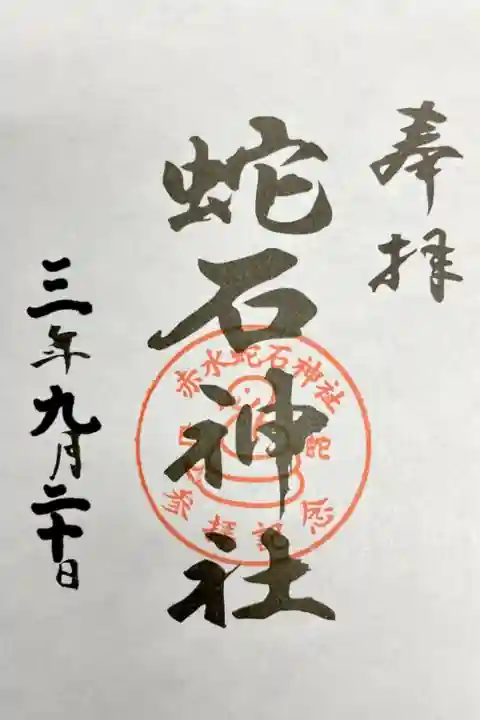 奉拝
蛇石神社
赤水蛇石神社
白 蛇
参拝記念
三年九月二十日